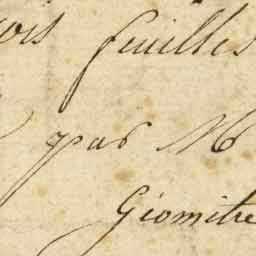 ois feuilles
par M
Géomètre